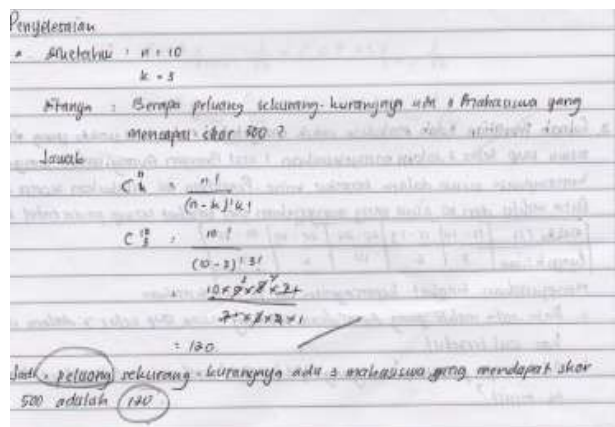 Penyelesaian
Diketahui : n = 10
k = 3
Ditanya : Berapa peluang sekurang-kurangnya ada 3 mahasiswa yang
mencapai skor 500 ?
Jawab
C n k = n!
(n - k)! k!
C 10 3 = 10!
(10 - 3)! 3!
= 10 x 9 x 8 x 7!
7! x 3 x 2 x 1
= 120
Jadi, peluang sekurang-kurangnya ada 3 mahasiswa yang mendapat skor
500 adalah 120